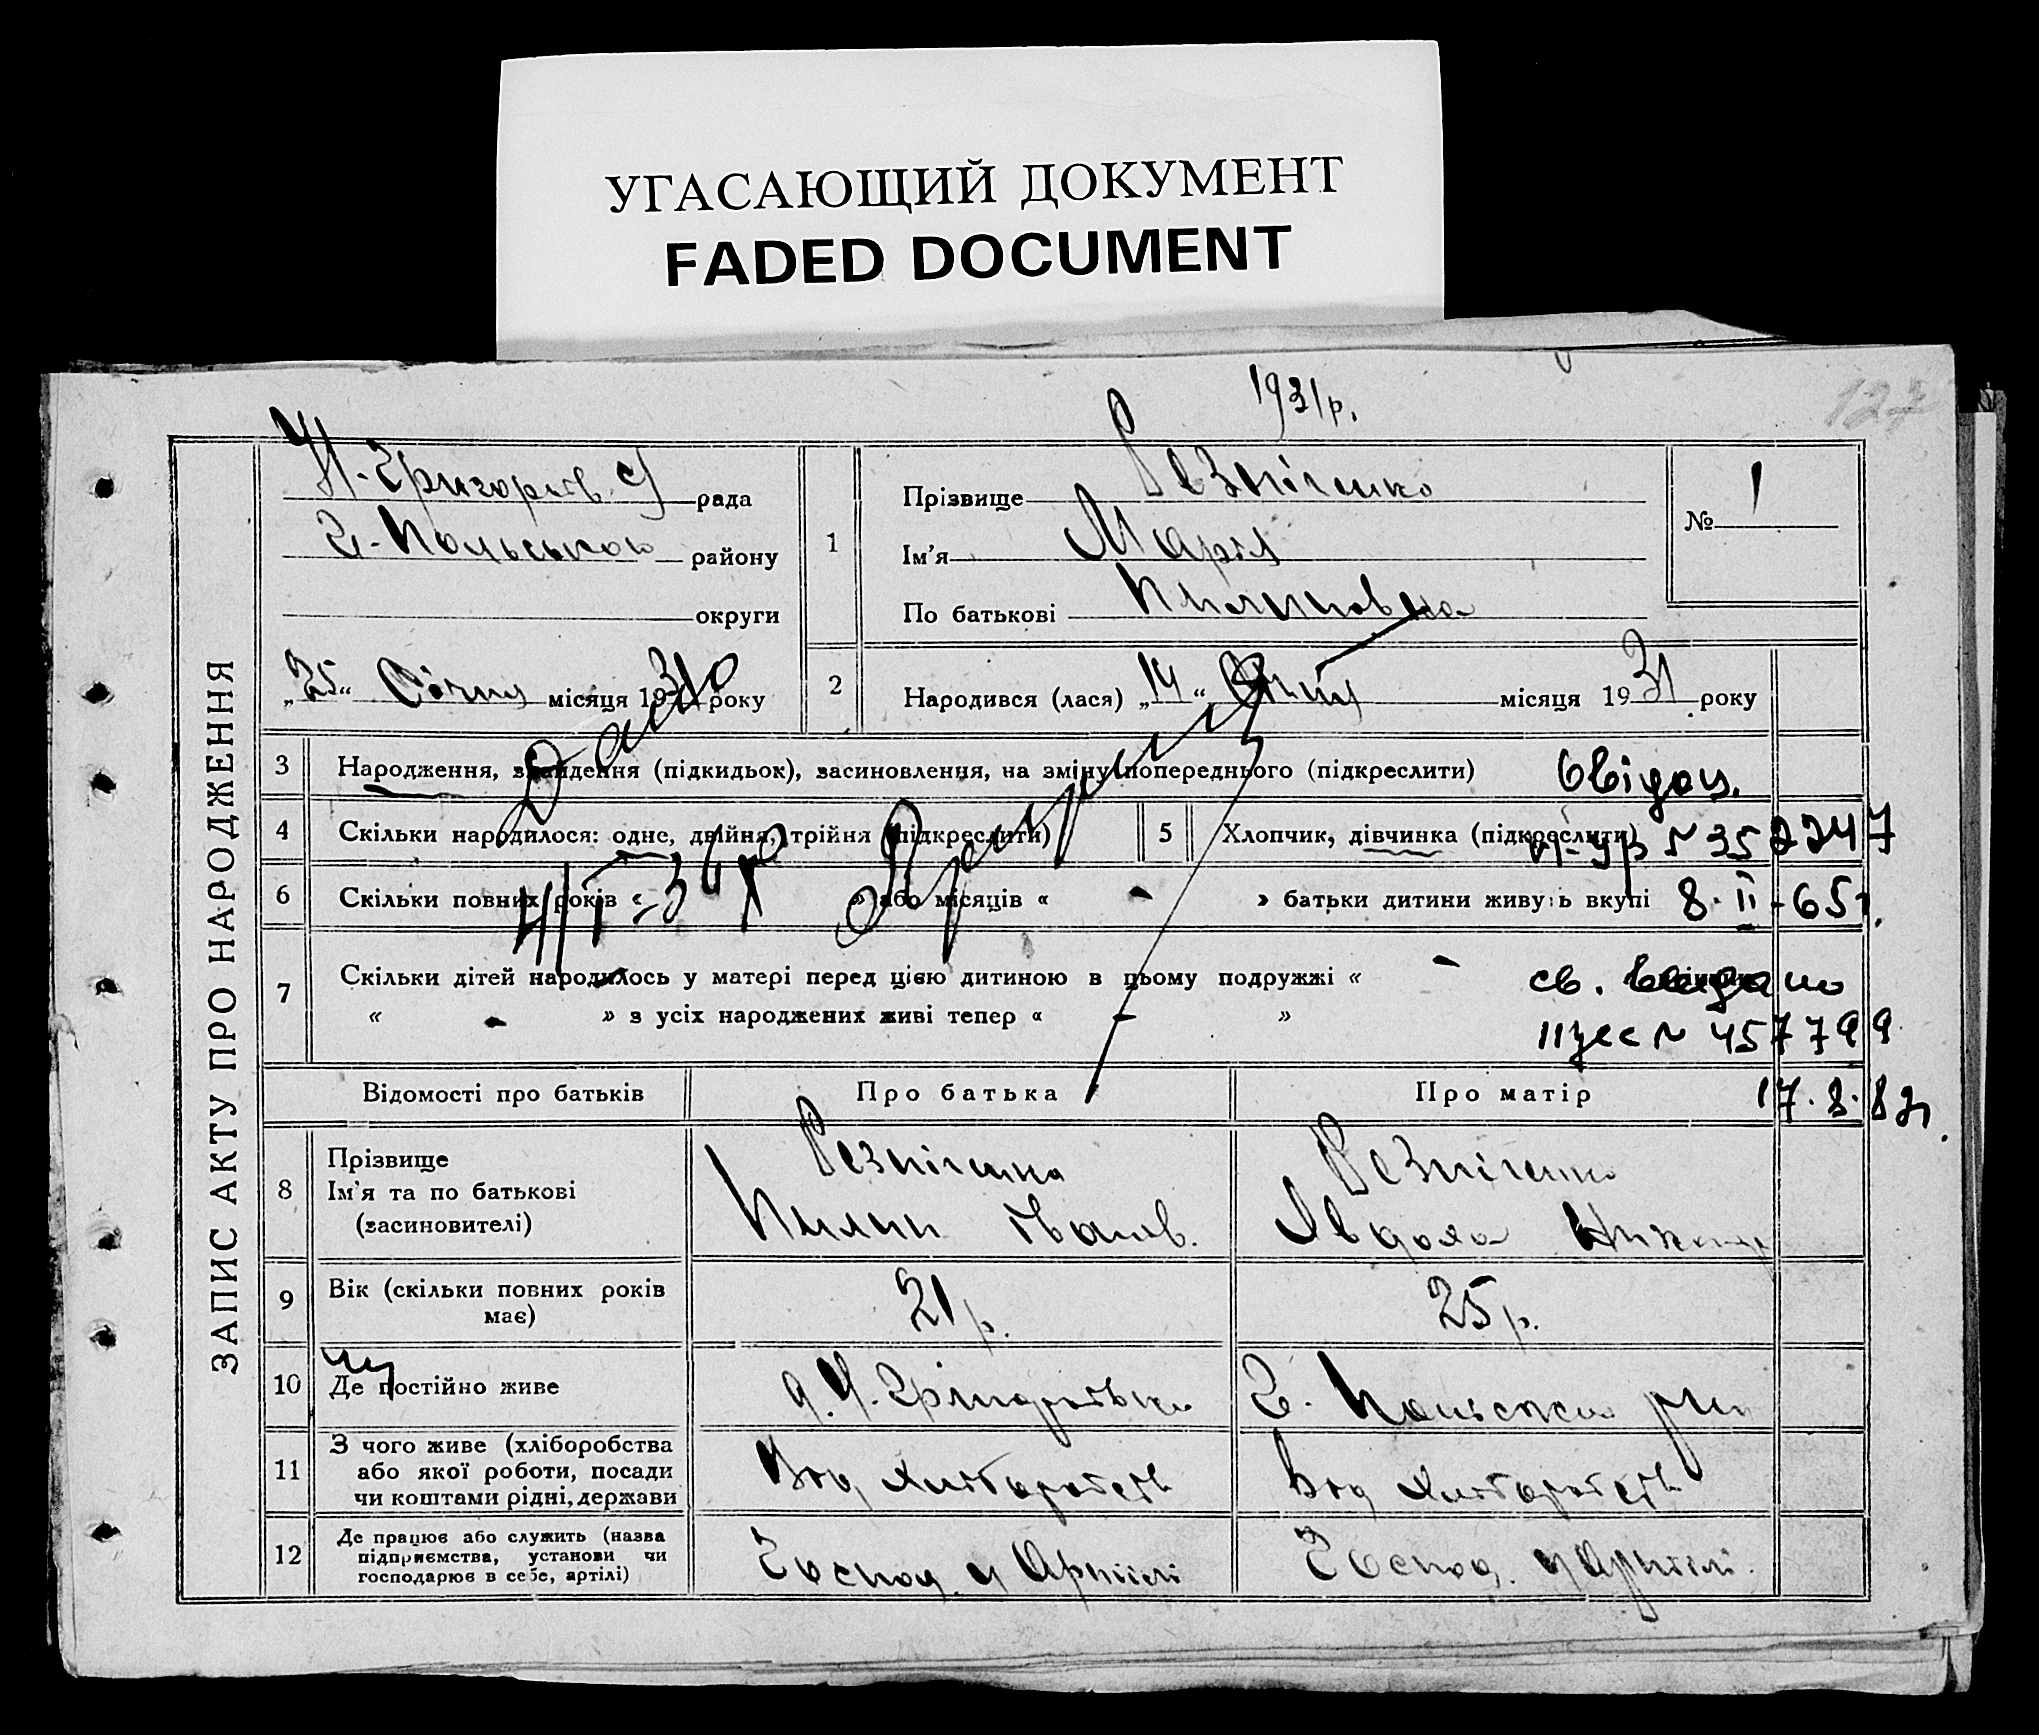 УГАСАЮЩИЙ ДОКУМЕНТ
FADED DOCUMENT
1931р.
127
ЗАПИС АКТУ ПРО НАРОДЖЕННЯ
рада
району
округи
„25“ Січня місяця 1931 року
1
Прізвище Резніченко
Ім'я Марія
По батькові Пилиповна
№ 1
2
Народився (лася) „14“ Січня місяця 1931 року
3 Народження, знайдення (підкидьок), засиновлення, на зміну попереднього (підкреслити)
4 Скільки народилося: одне, двійня, трійня (підкреслити)
5 Хлопчик, дівчинка (підкреслити)
№ 352247
6 Скільки повних років « - » або місяців « - » батьки дитини живуть вкупі
8·II-65г.
7 Скільки дітей народилось у матері перед цією дитиною в цьому подружжі « -
« - » з усіх народжених живі тепер « - »
св. видано
№ 457799
17.8.82г.
Відомості про батьків
Про батька
Про матір
8 Прізвище
Ім'я та по батькові
(засиновителі)
Резніченко
Пилип Іванов.
Резніченко
Явдоха
9 Вік (скільки повних років має)
21р.
25р.
10 Де постійно живе
11 З чого живе (хліборобства
або якої роботи, посади
чи коштами рідні, держави
Від хліборобств
Від хліборобств
12 Де працює або служить (назва
підприємства, установи чи
господарює в себе, артілі)
Господ. у Артілі
Господ. у Артілі.